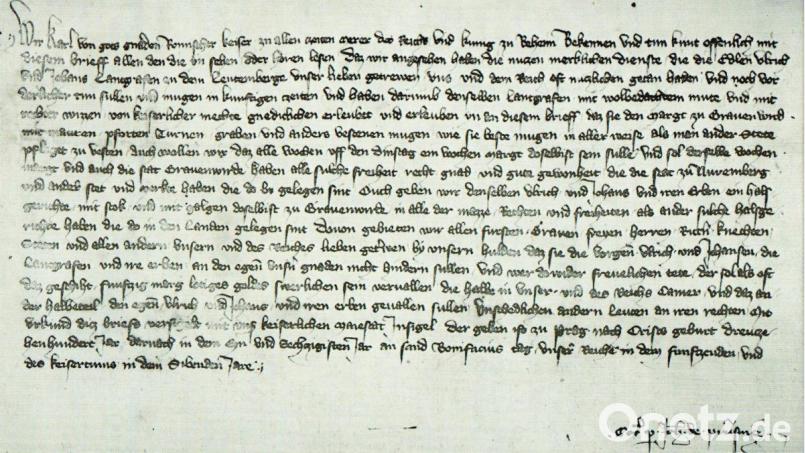 Wir Karl von gots gnaden Romischer keiser zu allen zeiten merer des Reichs und kunig zu Beheim Bekennen und tun kunt offenlich mit
diesem brieff allen den die in sehen oder horen lesen Daz wir angesehen haben die nuzen merklichen dienste die die Edlen Ulrich
und Johans Lantgrafen zu dem Leutemberge unser lieben getrewen uns und dem Reich oft nuzlichen getan haben und noch vor
derlicher tun sullen und mugen in kunftigen zeiten und haben darumb denselben Lantgrafen mit wolbedachtem mute und mit
rechter wizzen von keiserlicher mechte gnediclichen erleubet und erleuben in an diesem brieff daz sie den margt zu Gravenwerd
mit mauren pforten Turnen graben und anders vestenen mugen wie sie beste mugen in aller weise als man ander Stete
pfliget zu vesten Auch wollen wir daz alle wochen uff den dinstag ein wochen margt doselbist sein sulle und sol derselbe wochen
margt und auch die stat Gravenwerde haben alle sulche freiheit recht gnad und gute gewonheit die die stat zu Nuremberg
und ander stet und merkte haben die do bi gelegen sint Ouch geben wir denselben Ulrich und Johans und iren Erben ein hals
gerichte mit stok und mit galgen doselbist zu Gravenwerde in alle der mazze Rechten und freiheiten als ander sulche halsge
richte haben die do in den Landen gelegen sint Dovon gebieten wir allen fursten Graven freyen herren Rittern knechten
Steten und allen andern unsern und des Reiches lieben getrewen bi unsern hulden daz sie die vorgen Ulrich und Johansen die
Lantgrafen und ire erben an den egen unsn gnaden nicht hindern sullen und wer dowider frevelichen tete der sol als oft
daz geschiht funfzig marg lotiges goldes swerlichen sein vervallen die halb in unser und des Reichs Camer und daz an
der halbeteil den egen Ulrich und Johans und iren erben gevallen sullen unschedlichen andern leuten an iren rechten Mit
urkund diz briefs versigelt mit unserm keiserlichen maiestat Insigel Der geben ist zu Prag nach Cristes geburt dreuze
henhundert Jar darnach in dem Ein und Sechzigisten Jar an sand Bonifacius tag unser Reiche in dem funfzenden und
des keisertums in dem Sibenden Jare
Onetz.de